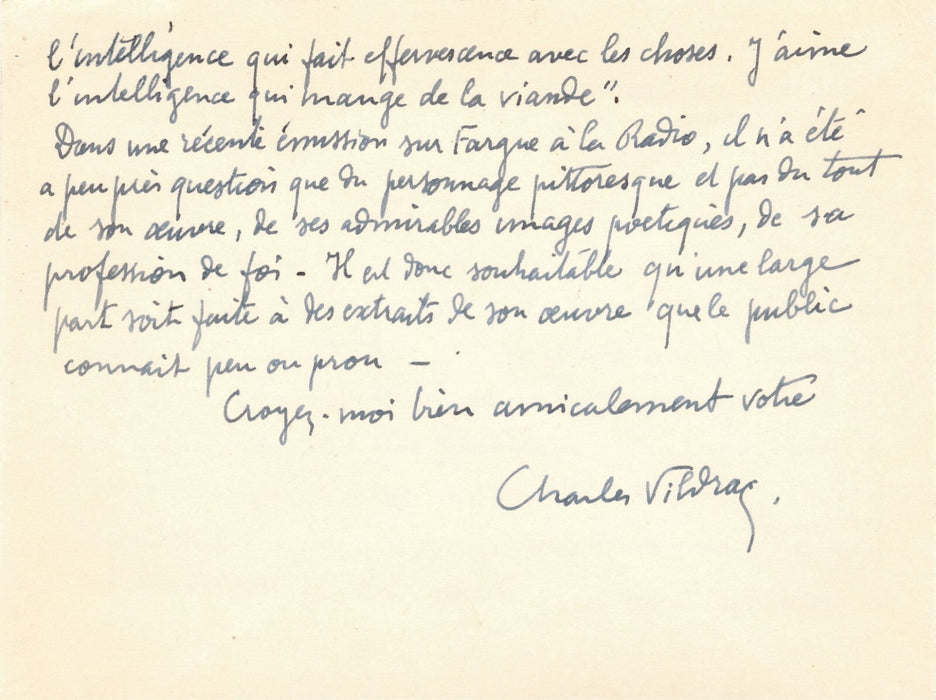 l'intelligence qui fait effervescence avec les choses. J'aime
l'intelligence qui mange de la viande".
Dans une récente émission sur Fargue à la Radio, il n'a été
a peu près question que du personnage pittoresque et pas du tout
de son œuvre, de ses admirables images poétiques, de sa
profession de foi - Il est donc souhaitable qu'une large
part soit faite à des extraits de son œuvre que le public
connait peu ou prou -
Croyez-moi bien amicalement votre
Charles Vildrac.